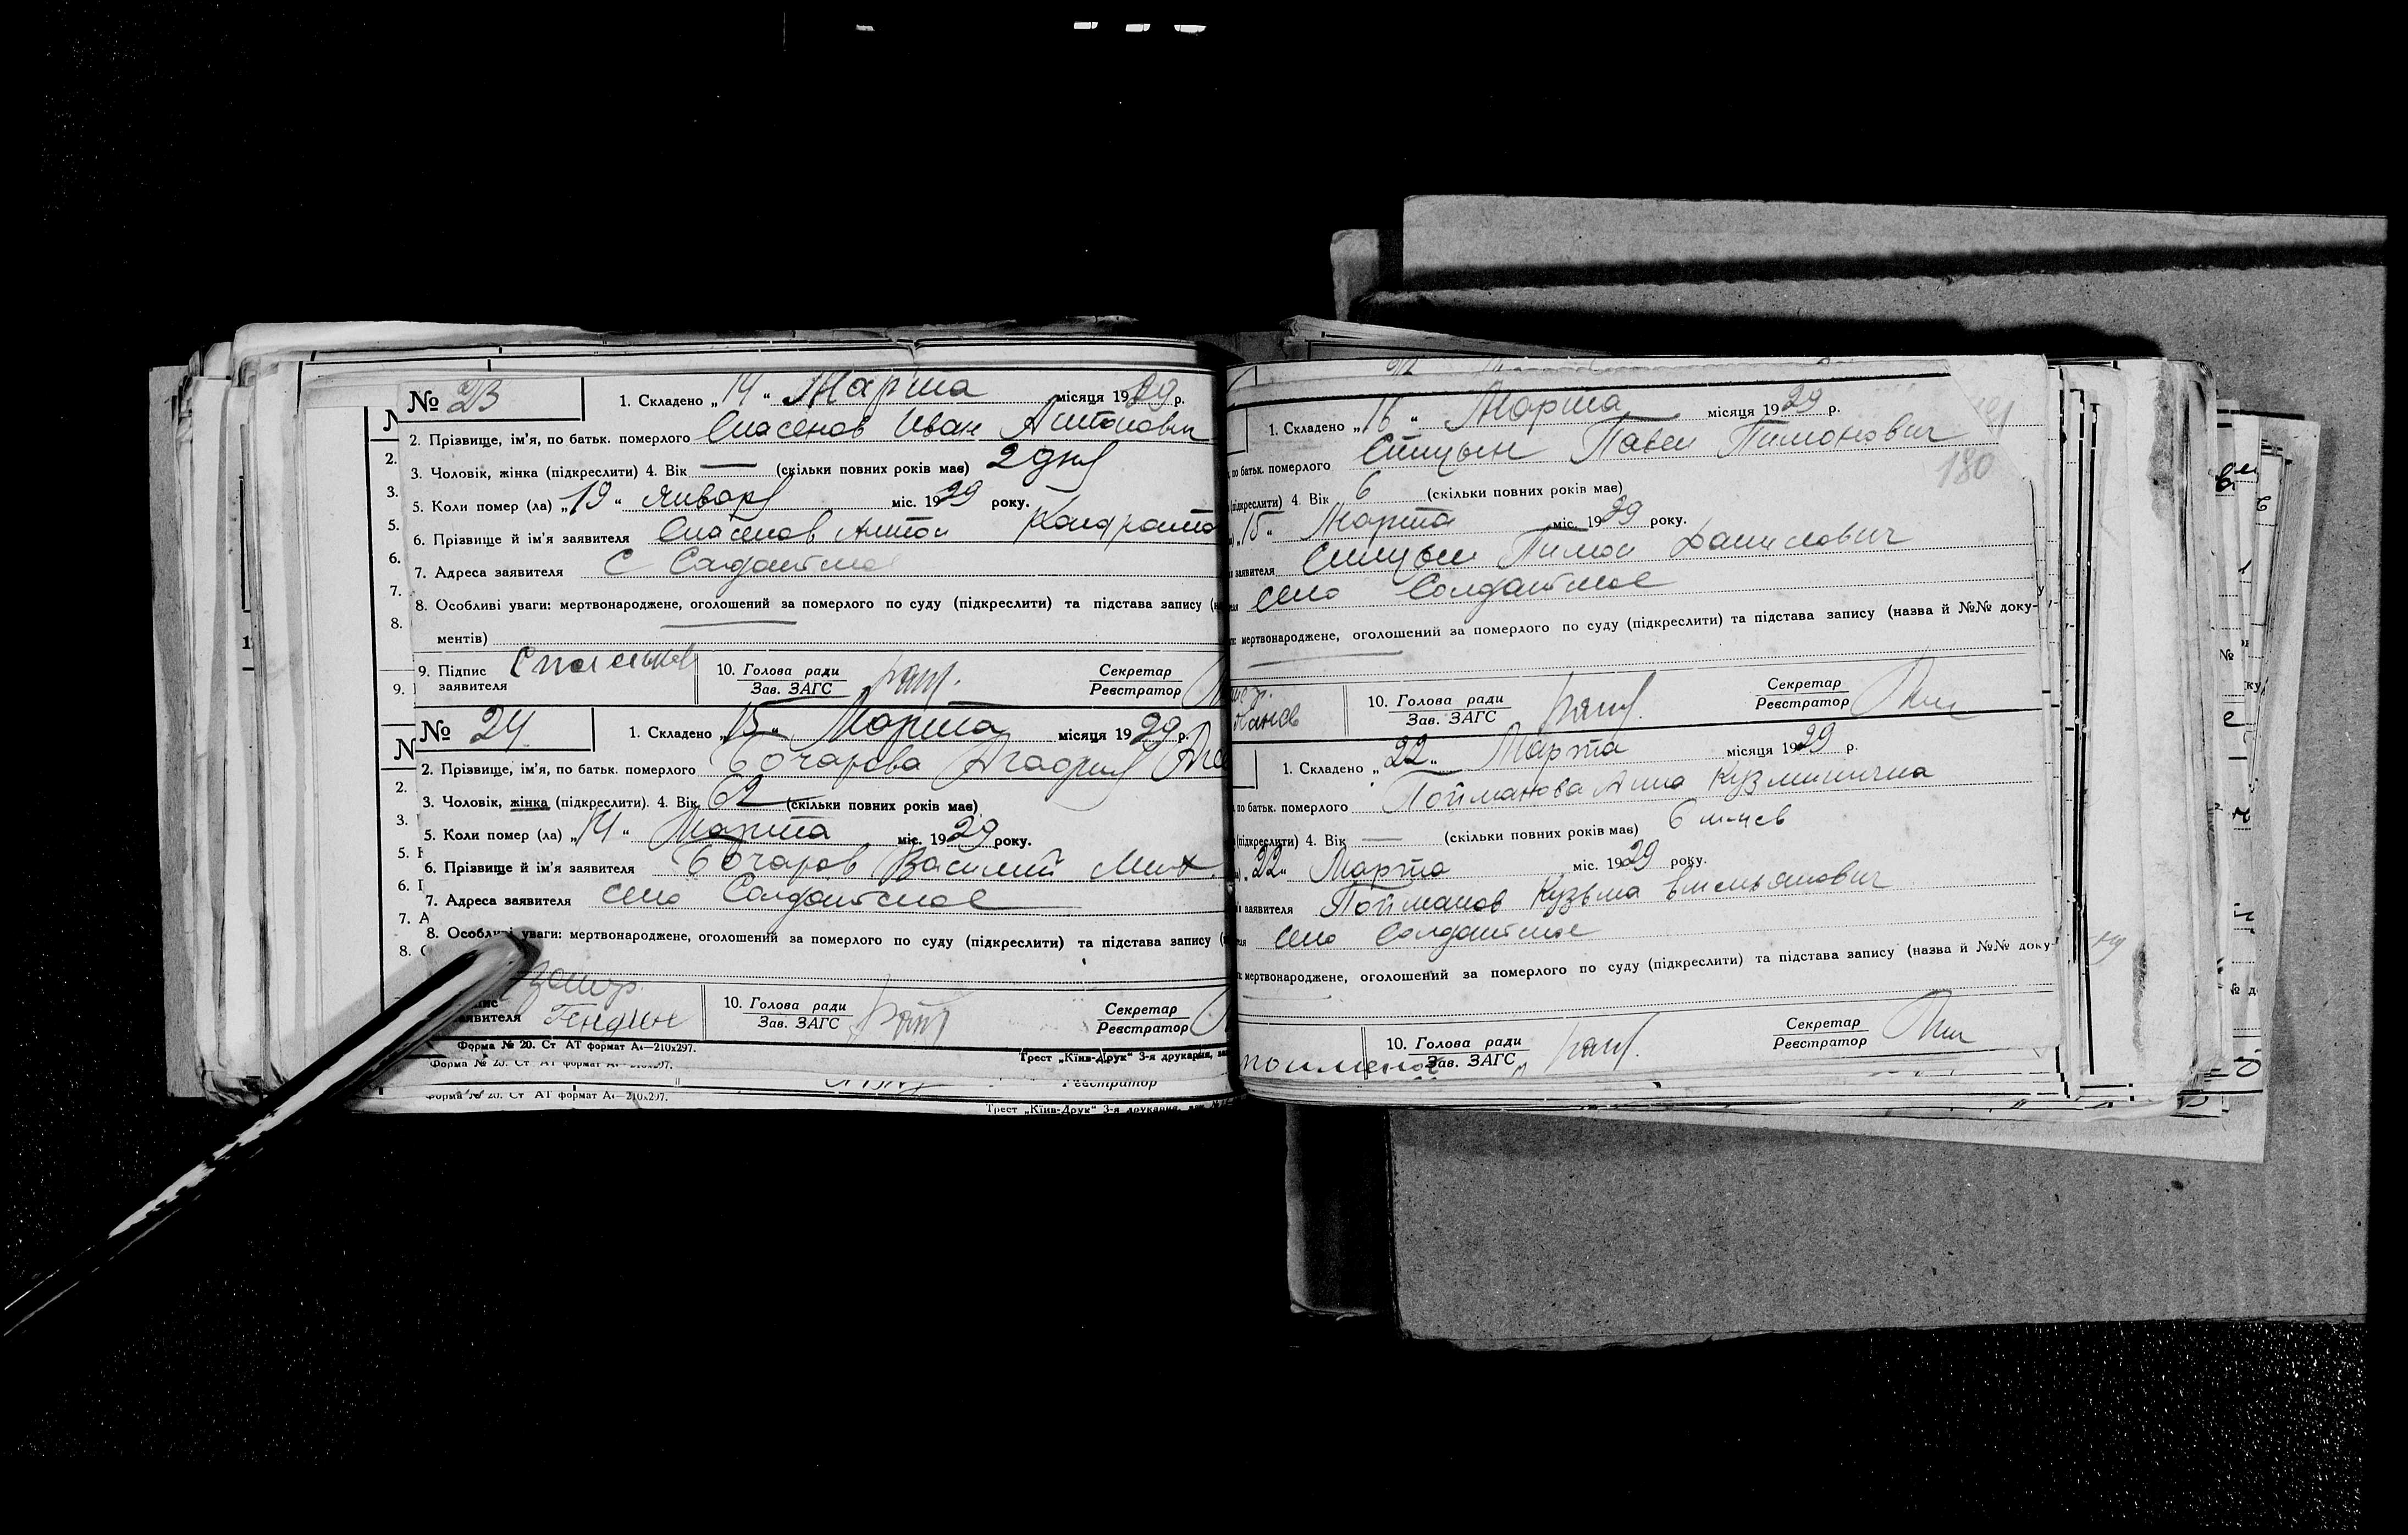 № 23
1. Складено „14“ Марта місяця 1929 р.
2. Прізвище, ім'я, по батьк. померлого Спасенов Иван Антонович
3. Чоловік, жінка (підкреслити) 4. Вік — (скільки повних років має) 2 дня
5. Коли помер (ла) „19“ января міс. 1929 року.
6. Прізвище й ім'я заявителя Спасенов Антон
7. Адреса заявителя С Солдатское
8. Особливі уваги: мертвонароджене, оголошений за померлого по суду (підкреслити) та підстава запису
ментів)
9. Підпис заявителя Спасенов
10. Голова ради
Зав. ЗАГС
Секретар
Реєстратор
№ 24
1. Складено „15“ Марта місяця 1929 р.
2. Прізвище, ім'я, по батьк. померлого Бочарова Агафия
3. Чоловік, жінка (підкреслити). 4. Вік 62 (скільки повних років має)
5. Коли помер (ла) „14“ Марта міс. 1929 року.
6. Прізвище й ім'я заявителя Бочаров Василий Мих.
7. Адреса заявителя село Солдатское
8. Особливі уваги: мертвонароджене, оголошений за померлого по суду (підкреслити) та підстава запису
заявителя Гендин
10. Голова ради
Зав. ЗАГС
Секретар
Реєстратор
Форма № 20. Ст АТ формат А4—210х297.
Трест „Київ-Друк“ 3-я друкарня,
Форма № 20. Ст АТ формат А4—210х297.
Реєстратор
Форма № 20. Ст АТ формат А4—210х297.
Трест „Київ-Друк“ 3-я друкарня,
1. Складено „16“ Марта місяця 1929 р.
по батьк. померлого Спицын Павел Пимонович
180
(підкреслити) 4. Вік 6 (скільки повних років має)
„15“ Марта міс. 1929 року.
заявителя Спицын Пимон Данилович
село Солдатское
мертвонароджене, оголошений за померлого по суду (підкреслити) та підстава запису (назва й №№ доку-
10. Голова ради
Зав. ЗАГС
Секретар
Реєстратор
1. Складено „22“ Марта місяця 1929 р.
по батьк. померлого Пойманова Анна Кузминична
(підкреслити) 4. Вік — (скільки повних років має) 6 м-цев
„22“ Марта міс. 1929 року.
заявителя Пойманов Кузьма Емельянович
село Солдатское
мертвонароджене, оголошений за померлого по суду (підкреслити) та підстава запису (назва й №№ доку-
10. Голова ради
Зав. ЗАГС
Секретар
Реєстратор